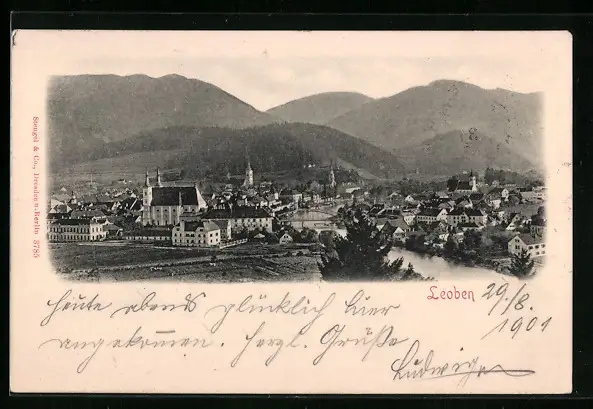 Stengel & Co., Dresden u. Berlin 3785
Leoben
29/8.
1901
Heute abends glücklich hier
angekommen. Herzl. Grüße
Ludwig